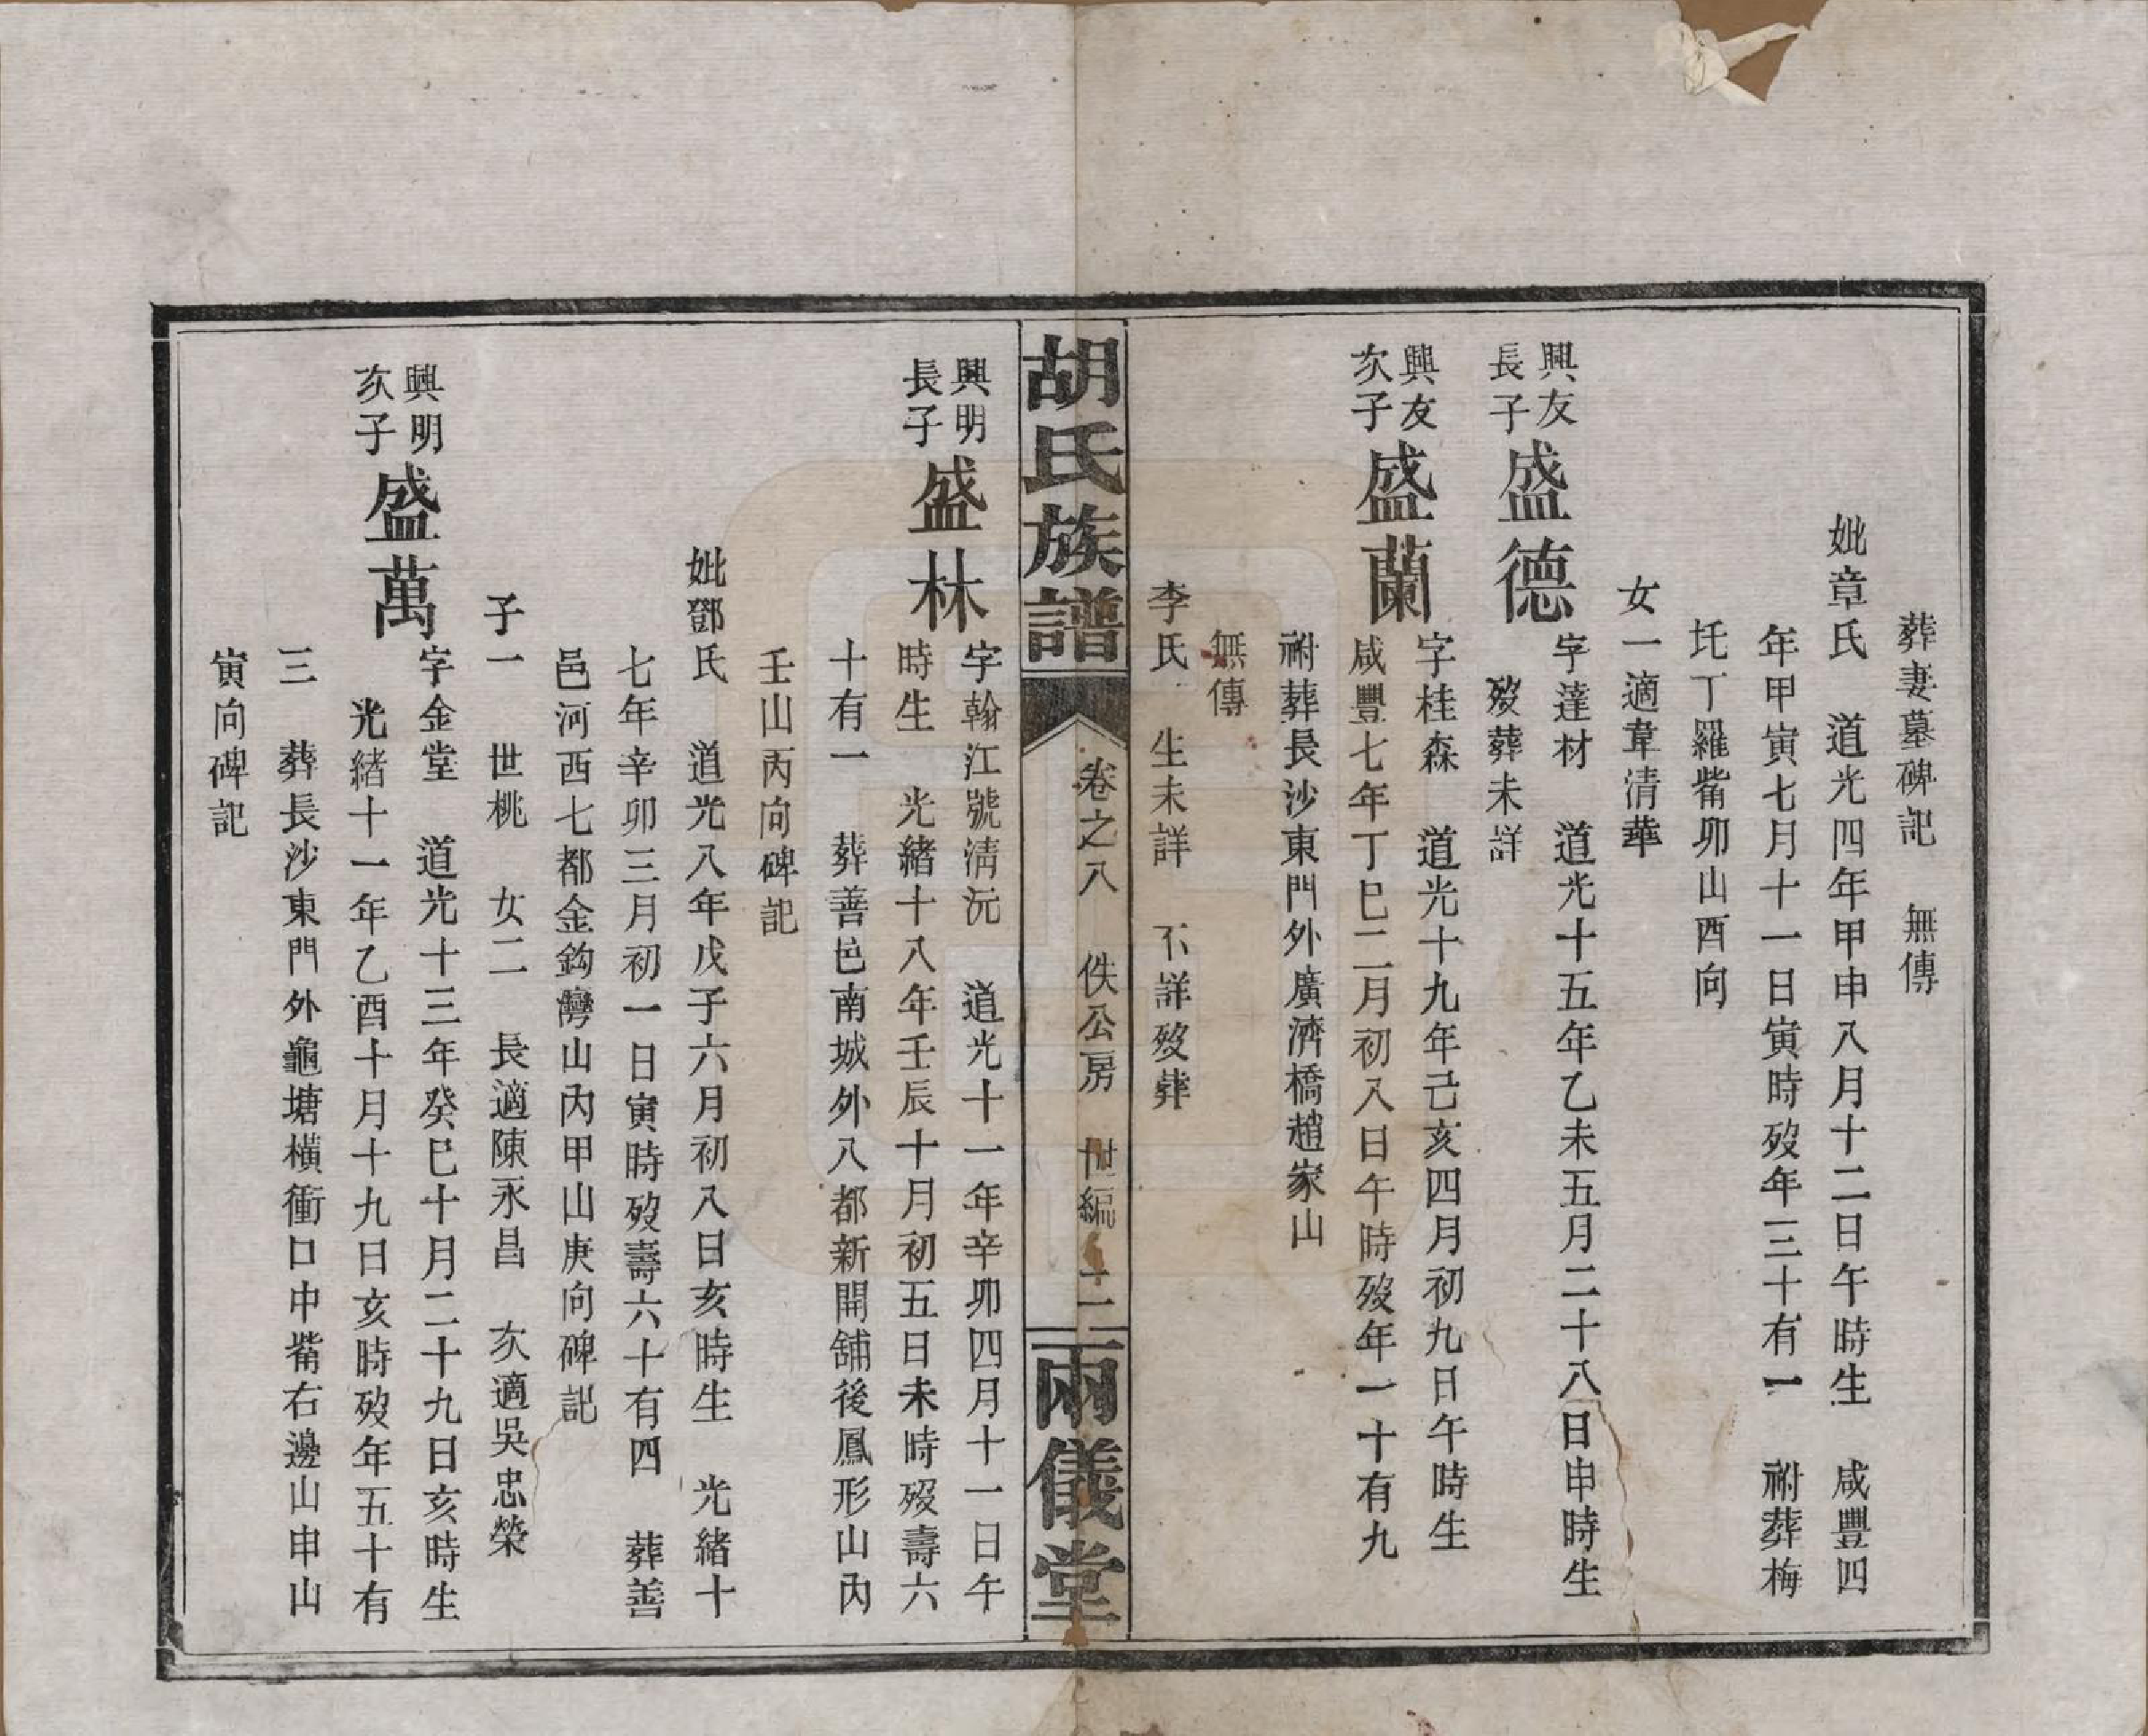 葬妻墓碑記　無傳
妣章氏　道光四年甲申八月十二日午時生　咸豐四
年甲寅七月十一日寅時歿年三十有一　祔葬梅
圫丁羅觜卯山酉向
女一適韋清華
興友長子盛德字達材　道光十五年乙未五月二十八日申時生
歿葬未詳
興友次子盛蘭字桂森　道光十九年己亥四月初九日午時生
咸豐七年丁巳二月初八日午時歿年一十有九
祔葬長沙東門外廣濟橋趙家山
無傳
李氏　生未詳　不詳歿葬
胡氏族譜　卷之八　佚公房　世編　二　兩儀堂
興明長子盛林字翰江號清沅　道光十一年辛卯四月十一日午
時生　光緒十八年壬辰十月初五日未時歿壽六
十有一　葬善邑南城外八都新開舖後鳳形山內
壬山丙向碑記
妣鄧氏　道光八年戊子六月初八日亥時生　光緒十
七年辛卯三月初一日寅時歿壽六十有四　葬善
邑河西七都金鈎灣山內甲山庚向碑記
子一　世桃　女二　長適陳永昌　次適吳忠榮
興明次子盛萬字金堂　道光十三年癸巳十月二十九日亥時生
光緒十一年乙酉十月十九日亥時歿年五十有
三　葬長沙東門外龜塘橫衝口中觜右邊山申山
寅向碑記